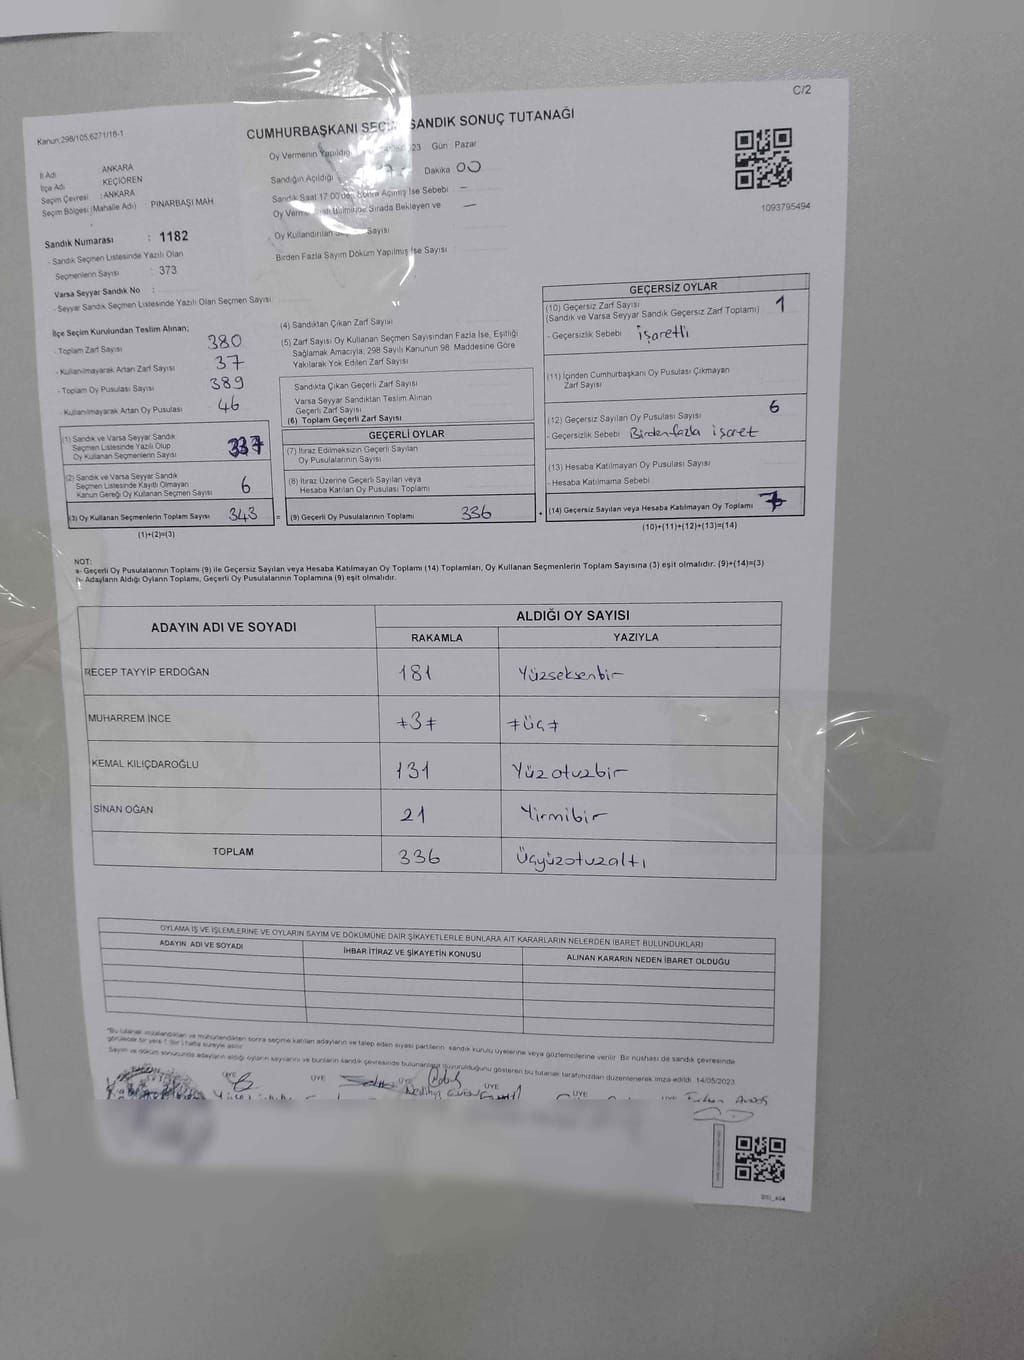 C/2
Kanun:298/105,6271/18-1
CUMHURBAŞKANI SANDIK SONUÇ TUTANAĞI
Oy Vermenin Gün : Pazar
İl Adı ANKARA
İlçe Adı KEÇİÖREN
Seçim Çevresi : ANKARA
Seçim Bölgesi (Mahalle Adı) : PINARBAŞI MAH
Sandığın Açıldığı Dakika 00
Sandık Saat 17:00'den Sonra Açılmış İse Sebebi : -
Oy Sırada Bekleyen ve -
Oy Kullandırılan Sayısı
Birden Fazla Sayım Döküm Yapılmış İse Sayısı
1093795494
Sandık Numarası : 1182
- Sandık Seçmen Listesinde Yazılı Olan
Seçmenlerin Sayısı : 373
Varsa Seyyar Sandık No :
- Seyyar Sandık Seçmen Listesinde Yazılı Olan Seçmen Sayısı:
İlçe Seçim Kurulundan Teslim Alınan;
- Toplam Zarf Sayısı 380
- Kullanılmayarak Artan Zarf Sayısı 37
- Toplam Oy Pusulası Sayısı 389
- Kullanılmayarak Artan Oy Pusulası 46
(1) Sandık ve Varsa Seyyar Sandık
Seçmen Listesinde Yazılı Olup
Oy Kullanan Seçmenlerin Sayısı 337
(2) Sandık ve Varsa Seyyar Sandık
Seçmen Listesinde Kayıtlı Olmayan
Kanun Gereği Oy Kullanan Seçmen Sayısı 6
(3) Oy Kullanan Seçmenlerin Toplam Sayısı 343
(1)+(2)=(3)
(4) Sandıktan Çıkan Zarf Sayısı
(5) Zarf Sayısı Oy Kullanan Seçmen Sayısından Fazla İse, Eşitliği
Sağlamak Amacıyla, 298 Sayılı Kanunun 98. Maddesine Göre
Yakılarak Yok Edilen Zarf Sayısı
Sandıkta Çıkan Geçerli Zarf Sayısı
Varsa Seyyar Sandıktan Teslim Alınan
Geçerli Zarf Sayısı
(6) Toplam Geçerli Zarf Sayısı
GEÇERLİ OYLAR
(7) İtiraz Edilmeksizin Geçerli Sayılan
Oy Pusulalarının Sayısı
(8) İtiraz Üzerine Geçerli Sayılan veya
Hesaba Katılan Oy Pusulası Toplamı
= (9) Geçerli Oy Pusulalarının Toplamı 336
GEÇERSİZ OYLAR
(10) Geçersiz Zarf Sayısı
(Sandık ve Varsa Seyyar Sandık Geçersiz Zarf Toplamı) 1
- Geçersizlik Sebebi işaretli
(11) İçinden Cumhurbaşkanı Oy Pusulası Çıkmayan
Zarf Sayısı
(12) Geçersiz Sayılan Oy Pusulası Sayısı 6
- Geçersizlik Sebebi Birden fazla işaret
(13) Hesaba Katılmayan Oy Pusulası Sayısı
- Hesaba Katılmama Sebebi
+ (14) Geçersiz Sayılan veya Hesaba Katılmayan Oy Toplamı 7
(10)+(11)+(12)+(13)=(14)
NOT:
a- Geçerli Oy Pusulalarının Toplamı (9) ile Geçersiz Sayılan veya Hesaba Katılmayan Oy Toplamı (14) Toplamları, Oy Kullanan Seçmenlerin Toplam Sayısına (3) eşit olmalıdır. (9)+(14)=(3)
b- Adayların Aldığı Oyların Toplamı, Geçerli Oy Pusulalarının Toplamına (9) eşit olmalıdır.
ADAYIN ADI VE SOYADI ALDIĞI OY SAYISI
RAKAMLA YAZIYLA
RECEP TAYYİP ERDOĞAN 181 Yüzseksenbir
MUHARREM İNCE ≠3≠ ≠üç≠
KEMAL KILIÇDAROĞLU 131 Yüzotuzbir
SİNAN OĞAN 21 Yirmibir
TOPLAM 336 Üçyüzotuzaltı
OYLAMA İŞ VE İŞLEMLERİNE VE OYLARIN SAYIM VE DÖKÜMÜNE DAİR ŞİKAYETLERLE BUNLARA AİT KARARLARIN NELERDEN İBARET BULUNDUKLARI
ADAYIN ADI VE SOYADI İHBAR İTİRAZ VE ŞİKAYETİN KONUSU ALINAN KARARIN NEDEN İBARET OLDUĞU
"Bu tutanak imzalandıktan ve mühürlendikten sonra seçime katılan adayların ve talep eden siyasi partilerin sandık kurulu üyelerine veya gözlemcilerine verilir. Bir nüshası da sandık çevresinde
görülecek bir yere 1 (bir) hafta süreyle asılır.
Sayım ve döküm sonucunda adayların aldığı oyların sayılarını ve bunların sandık çevresinde bulunanlara duyurulduğunu gösteren bu tutanak tarafımızdan düzenlenerek imza edildi. 14/05/2023
ÜYE ÜYE ÜYE ÜYE